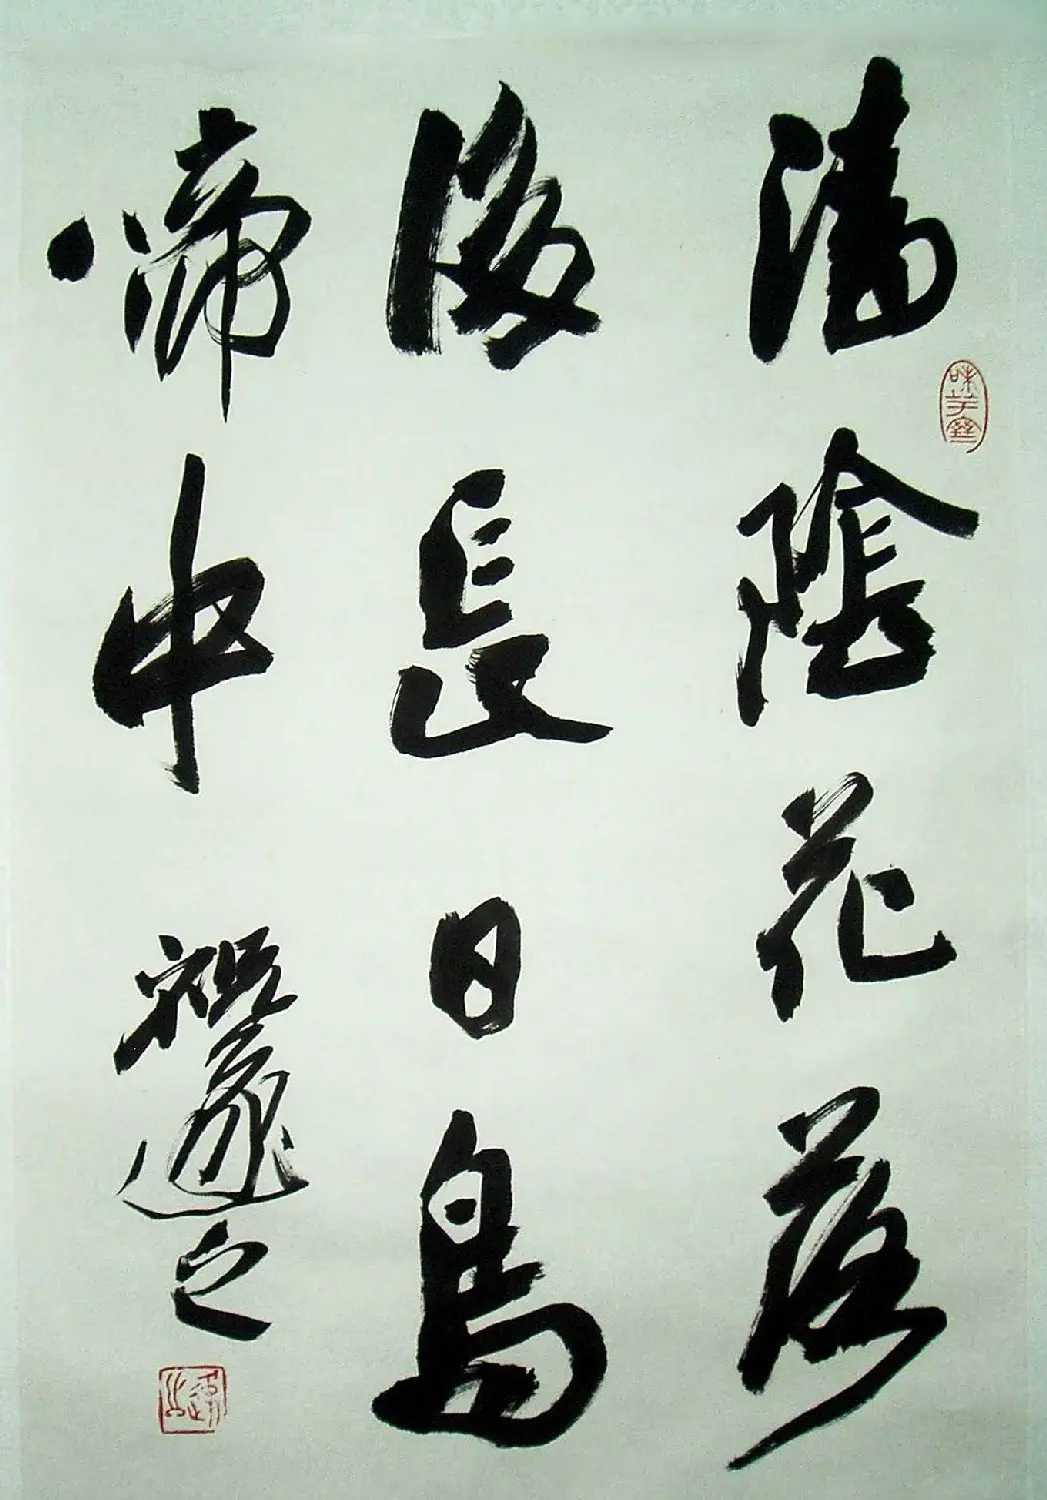 清陰花落
後長日鳥
啼中 祝遂之